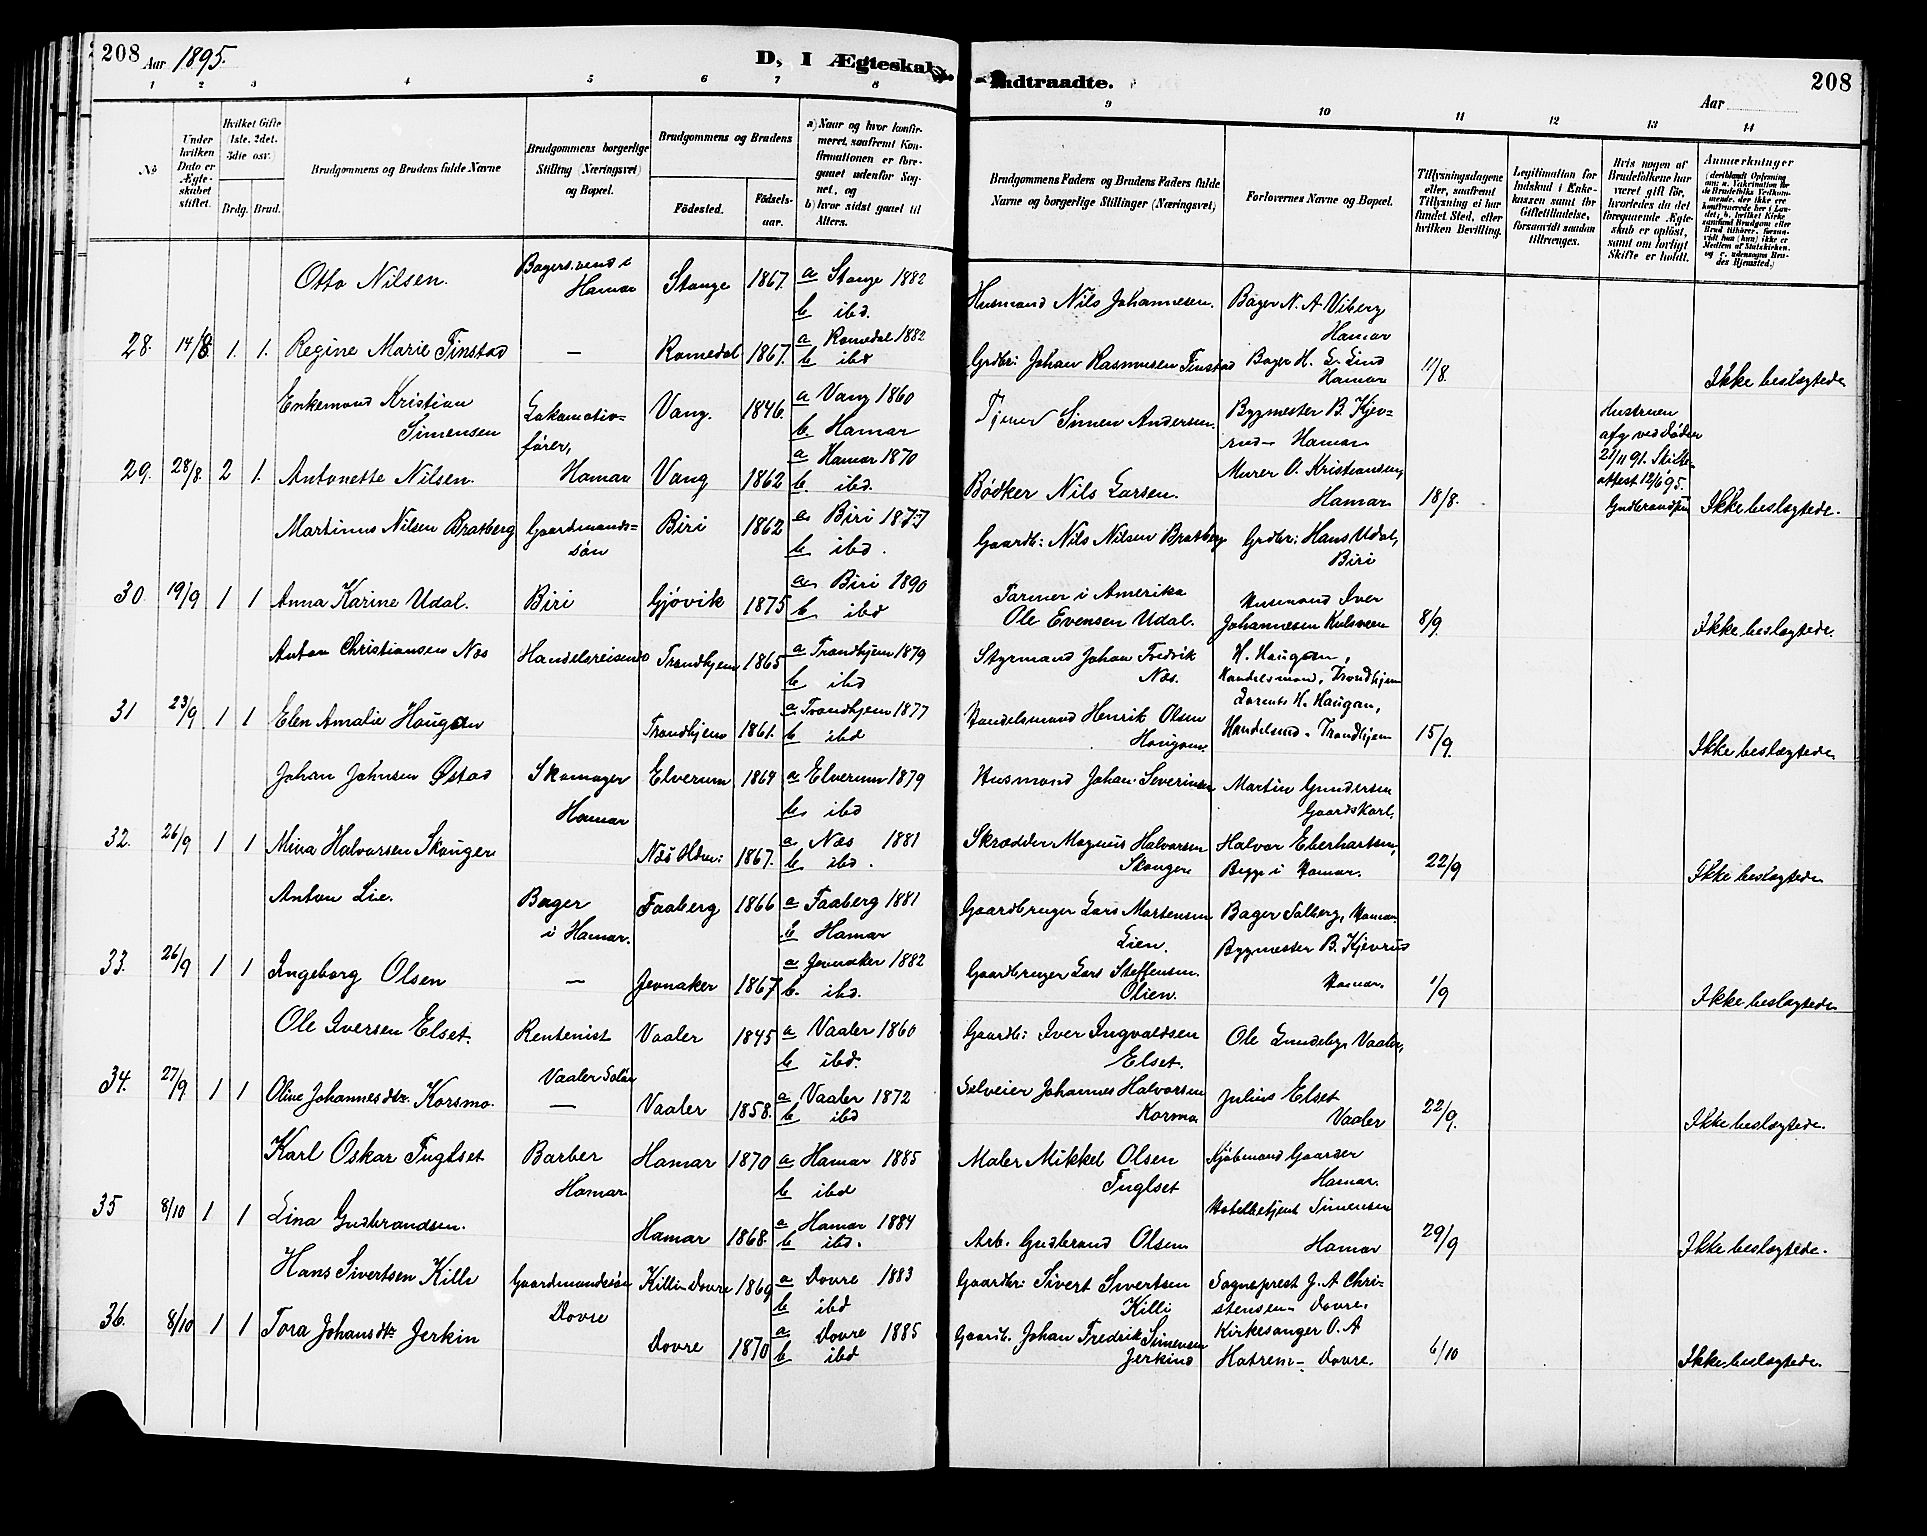 208 Aar 1895.
D, I Ægteskab
Indtraadte.
208
Aar
1 2 3 4 5 6 7 8
9 10 11 12 13 14
No
Under hvilken Dato er Ægteskabet stiftet.
Hvilket Gifte (1ste, 2det, 3die osv.)
Brdg. Brud.
Brudgommens og Brudens fulde Navne
Brudgommens borgerlige Stilling (Næringsvei) og Bopæl.
Brudgommens og Brudens
Fødested.
Fødselsaar.
a) Naar og hvor konfirmeret, saafremt Konfirmationen er foregaaet udenfor Sognet, og
b) hvor sidst gaaet til Alters.
Brudgommens Faders og Brudens Faders fulde Navne og borgerlige Stillinger (Næringsvei)
Forlovernes Navne og Bopæl.
Tillysningsdagene eller, saafremt Tillysning ei har fundet Sted, efter hvilken Bevilling.
Legitimation for Indskud i Enkekassen samt for Giftetilladelse, forsaavidt saadan tiltrænges.
Hvis nogen af Brudefolkene har været gift før, hvorledes da det foregaaende Ægteskab er opløst, samt om lovligt Skifte er holdt.
Anmærkninger
Otto Nilsen. Bagersvend i Hamar Stange 1867. a Stange 1882 b ibd. Husmand Nils Johannesen. Bager N. A Viberg Hamar
28. 14/8 1. 1. Regine Marie Finstad — Romedal 1867. a Romedal 1882 b ibd Grdbr: Johan Rasmusen Finstad Bager H. L. Lind Hamar 11/8. Ikke beslægtede
Enkemand Kristian Simensen Lokomotivfører, Hamar Vang. 1846. a Vang 1860 b Hamar Tjener Simen Andersen. Bygmester B. Kjevrud - Hamar Hustruen afg ved Døden 21/11 91. Skifteattest 12/6 95.
29. 28/8. 2 1. Antonette Nilsen. Vang 1862 a Hamar 1870 b. ibd. Bødker Nils Larsen. Murer O. Kristiansen, Hamar 18/8. Ikke beslægtede.
Martinus Nilsen Bratberg Gaardmandssøn Biri 1862 a Biri 1877 b ibd. Gaardb: Nils Nilsen Bratberg Grdbr: Hans Udal, Biri
30. 19/9 1 1 Anna Karine Udal. Biri Gjøvik 1875 a Biri 1890 b ibd Farmer i Amerika Ole Evensen Udal. Husmand Iver Johannesen Kulsveen 8/9. Ikke beslægtede.
Anton Christiansen Næs Handelsreisende Trondhjem 1865 a Trondhjem 1879 b ibd Styrmand Johan Fredrik Næs. H. Haugan, Handelsmand, Trondhjem
31 23/9 1 1 Elen Amalie Haugan Trondhjem 1861. a Trondhjem 1877 b ibd Handelsmand Henrik Olsen Haugan. Lorents H. Haugan, Handelsmd. Trondhjem 15/9. Ikke beslægtede
Johan Johnsen Østad Skomager Hamar Elverum 1864 a Elverum 1879 b ibd Husmand Johan Severinsen Martin Gundersen Gaardskarl,
32. 26/9 1 1 Mina Halvorsen Skauger Næs Hdm: 1867. a Næs 1881 b ibd. Skrædder Magnus Halvorsen Skaugen Halvor Eberhartsen, Begge i Hamar. 22/9 Ikke beslægtede
Anton Lie. Bager i Hamar. Faaberg 1866 a Faaberg 1881 b Hamar Gaardbruger Lars Mortensen Lien. Bager Solberg, Hamar
33. 26/9 1 1 Ingeborg Olsen — Jevnaker 1867 a Jevnaker 1882 b. ibd. Gaardbruger Lars Steffensen Olien. Bygmester B. Kjevrud Hamar. 1/9 Ikke beslægtede
Ole Iversen Elset. Rentenist Vaaler Solør Vaaler 1845 a Vaaler 1860 b ibd. Gaardb: Iver Ingvaldsen Elset. Ole Lundeby, Vaaler,
34. 27/9. 1 1 Oline Johannesdtr. Korsmo. — Vaaler 1858. a Vaaler 1872 b ibd Selveier Johannes Halvorsen Korsmo Julius Elset Vaaler 22/9. Ikke beslægtede.
Karl Oskar Fuglset Barber Hamar Hamar 1870 a Hamar 1885 b ibd Maler Mikkel Olsen Fuglset Kjøbmand Gaarser Hamar.
35 8/10 1 1 Lina Gudbrandsen. Hamar 1868. a Hamar 1884 b ibd. Arb. Gudbrand Olsen Hotelbetjent Simensen Hamar 29/9 Ikke beslægtede.
Hans Sivertsen Killi Gaardmandssøn Dovre Killi Dovre 1869 a Dovre 1883 b ibd Gaardbr: Sivert Sivertsen Killi Sogneprest J. A Christensen - Dovre.
36. 8/10 1 1 Tora Johansdtr Jerkin Dovre 1870 a Dovre 1885 b ibd Gaardb. Johan Fredrik Simensen Jerkind Kirkesanger O. A Hatrem - Dovre. 6/10 Ikke beslægtede.